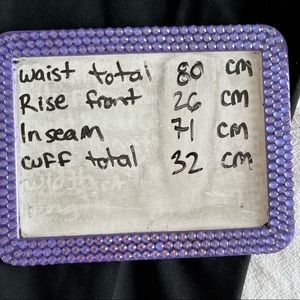 waist total 80 cm
Rise front 26 cm
Inseam 71 cm
cuff total 32 cm